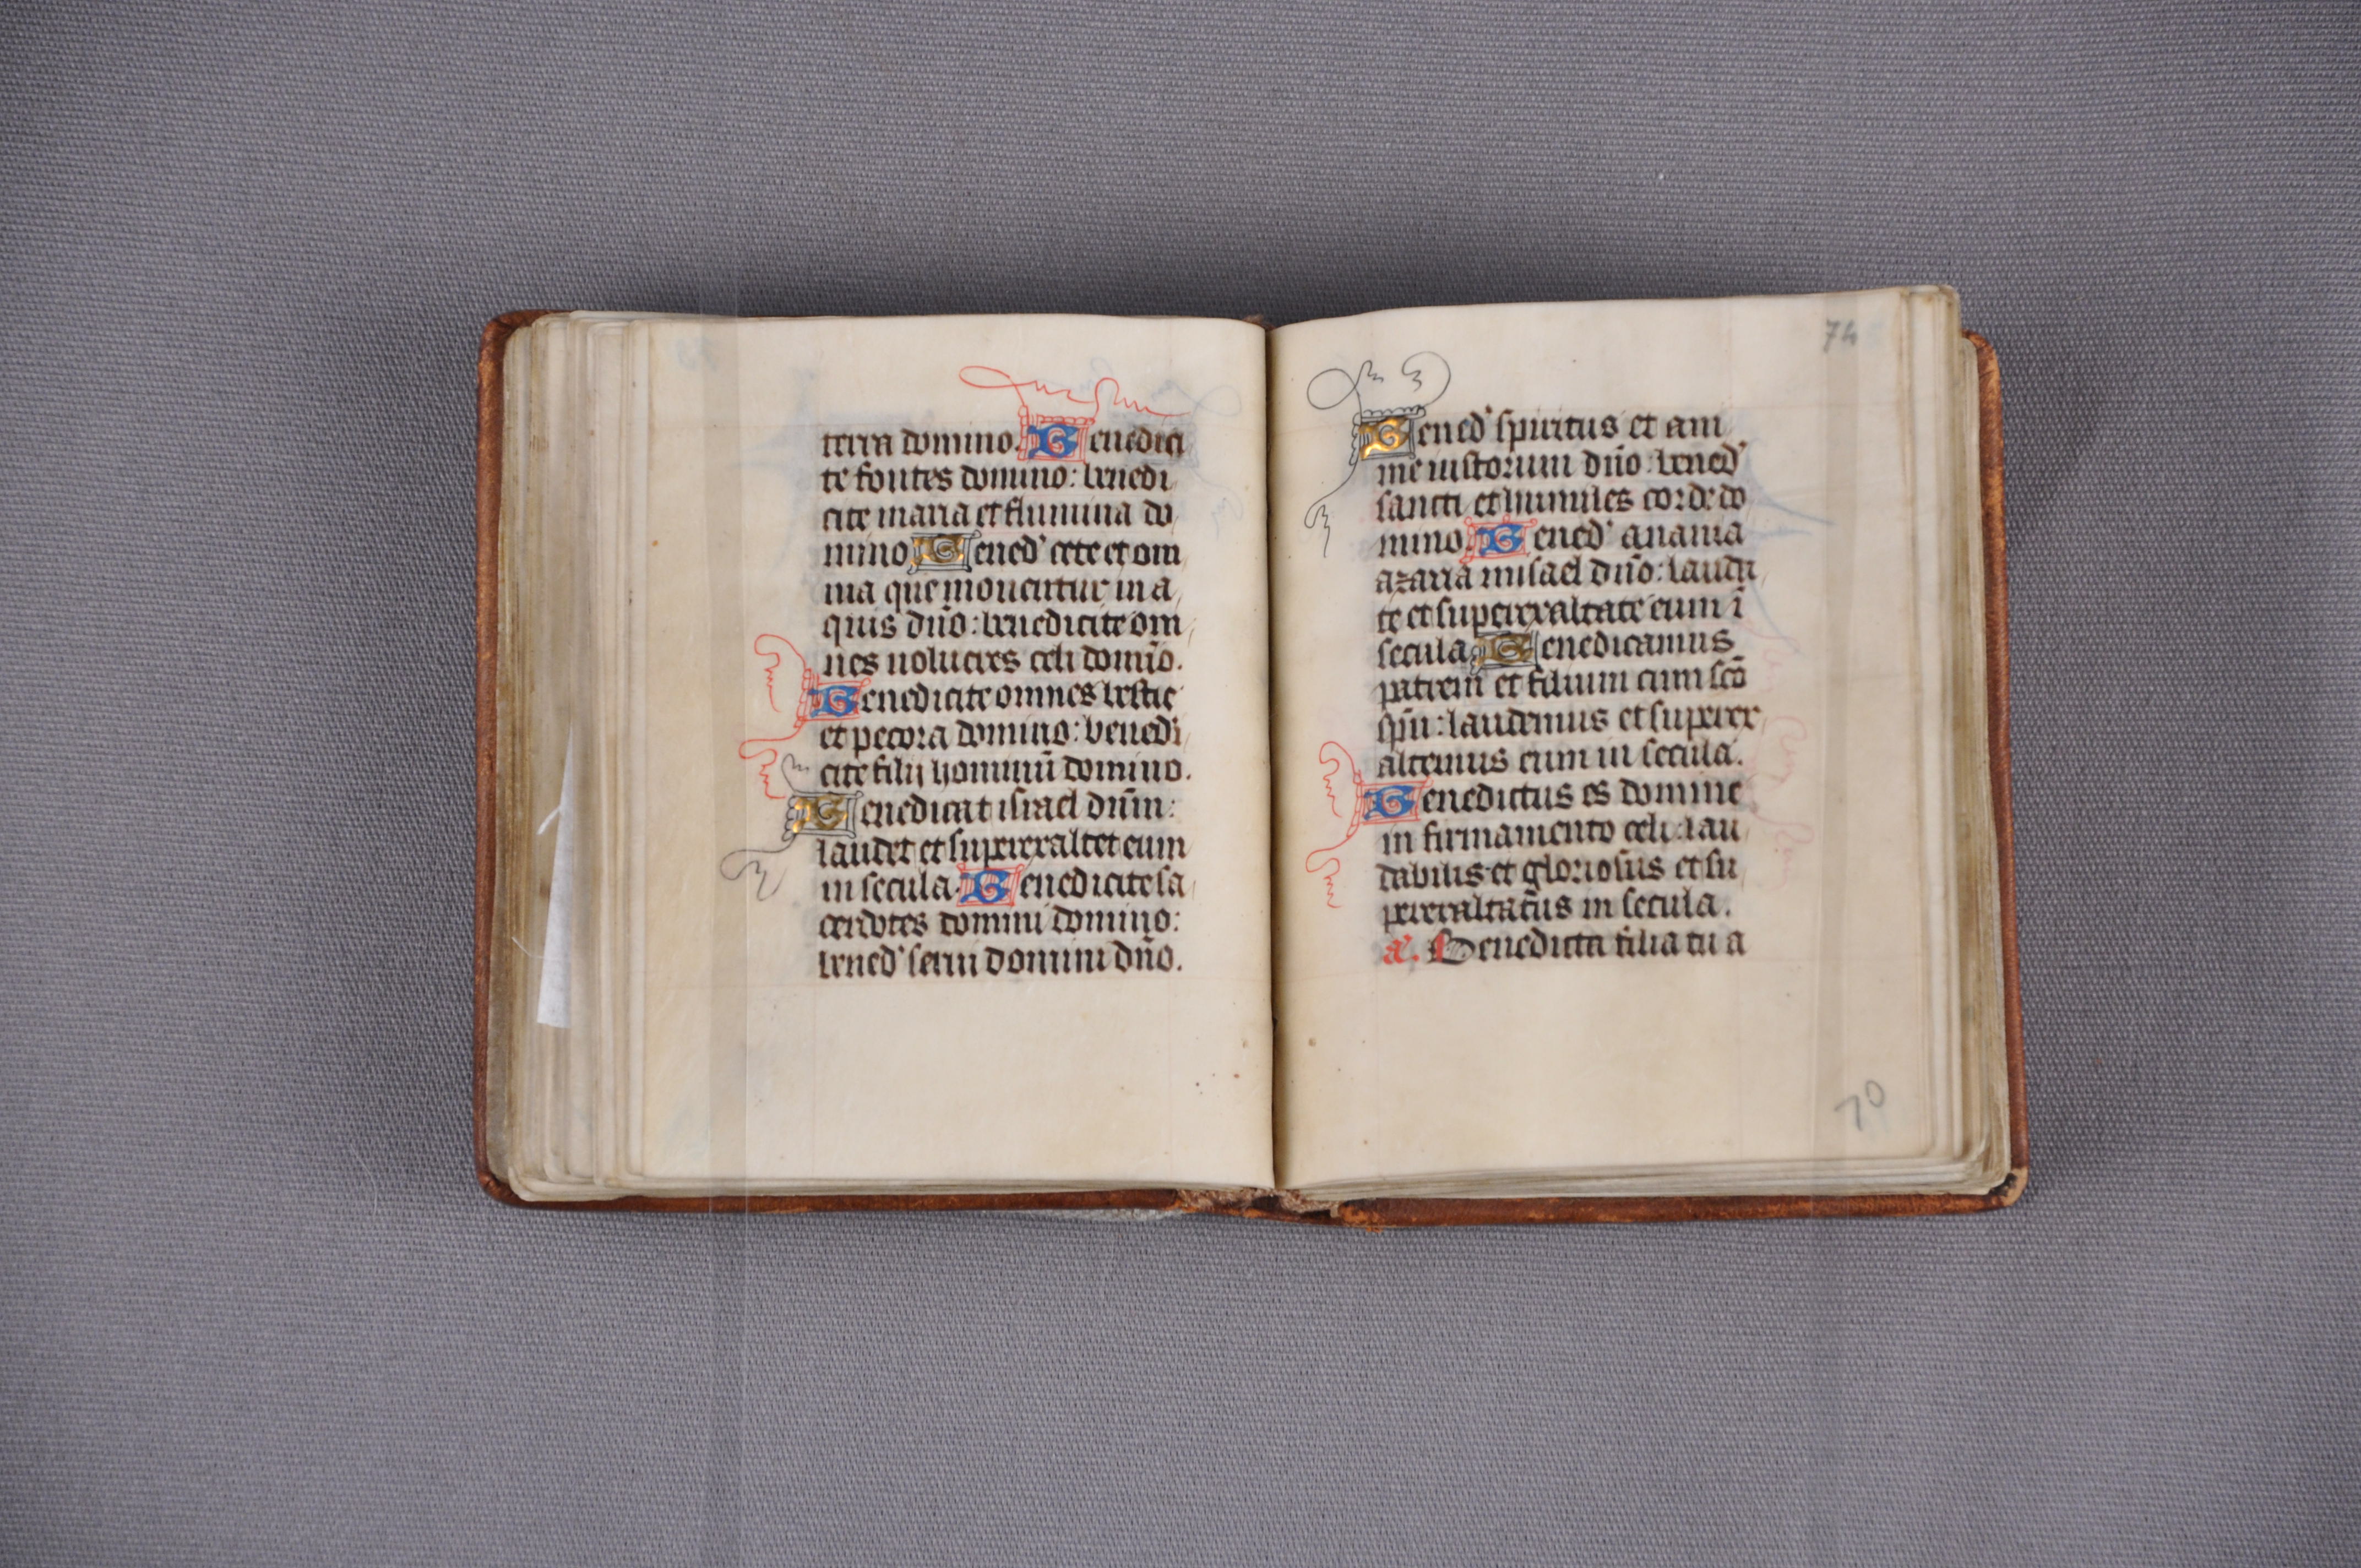 terra domino. Benedici
te fontes domino: benedi
cite maria et flumina do
mino Bened' cete et om
nia que mouentur in a
quis dn̄o: benedicite om
nes uolucres celi domīo.
Benedicite omnes bestie
et pecora domino: benedi
cite filij hominū domino.
Benedicat israel dn̄m:
laudet et superexaltet eum
in secula. Benedicite sa
cerdotes domini domino:
bened' serui domini dn̄o.
74
Bened' spiritus et ani
me iustorum dn̄o: bened'
sancti et humiles corde do
mino. Bened' anania
azaria misael dn̄o: lauda
te et superexaltate eum ī
secula. Benedicamus
patrem et filium cum scō
spū: laudemus et superex
altemus eum in secula.
Benedictus es domine
in firmamento celi: lau
dabilis et gloriosus et su
perexaltatus in secula.
a'. Benedicta filia tu a
70